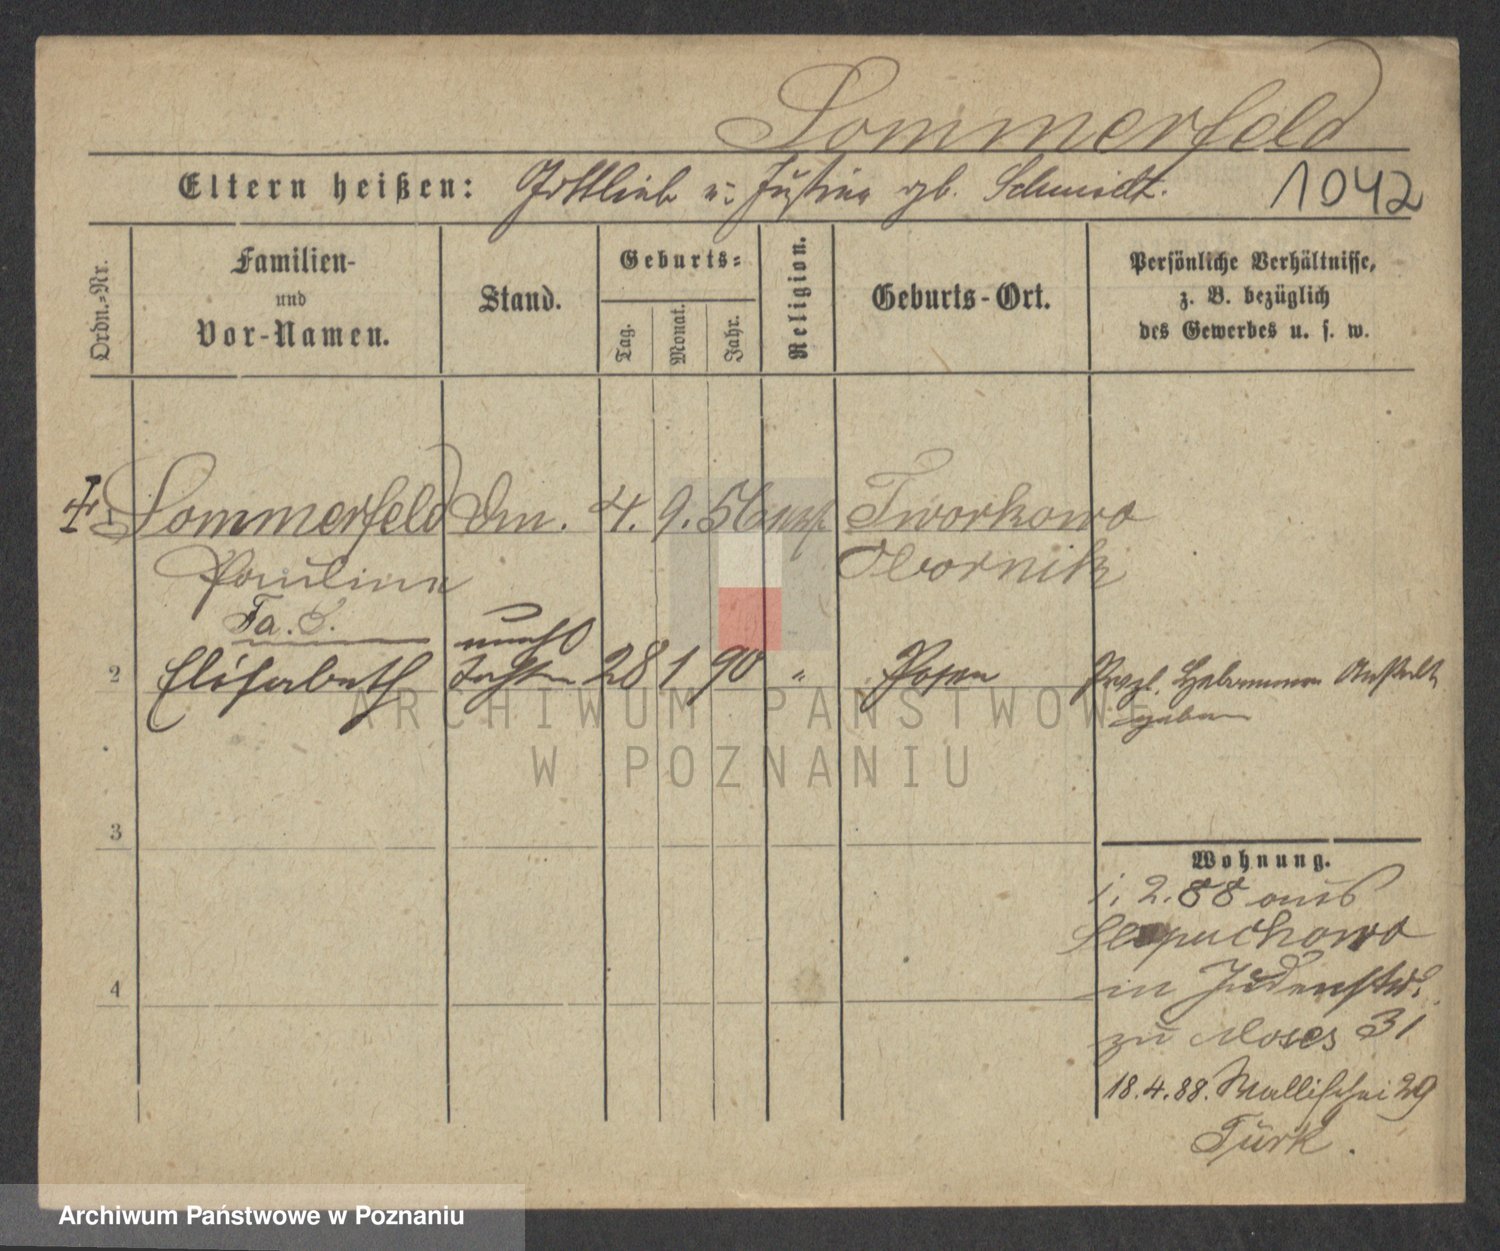 Sommerfeld
Eltern heißen: Gottlieb u: Justine gb. Schmidt. 1042
Ordn.-Nr.
Familien-
und
Vor-Namen.
Stand.
Geburts-
Tag.
Monat.
Jahr.
Religion.
Geburts-Ort.
Persönliche Verhältnisse,
z. B. bezüglich
des Gewerbes u. s. w.
1 Sommerfeld Dm. 4. 9. 56 Tworkowo
Pauline Obornik
Fa. S.
2 Elisabeth unehl Tochter 28 1 90 " Posen Provzl. Hebammen Anstalt
geboren
3
Wohnung.
1. 2. 88 aus
Slopuchowo
4
in Judenstr.
zu Moses 31
18.4.88. Wallischei 29
Türk.
ARCHIWUM PAŃSTWOWE
W POZNANIU
Archiwum Państwowe w Poznaniu